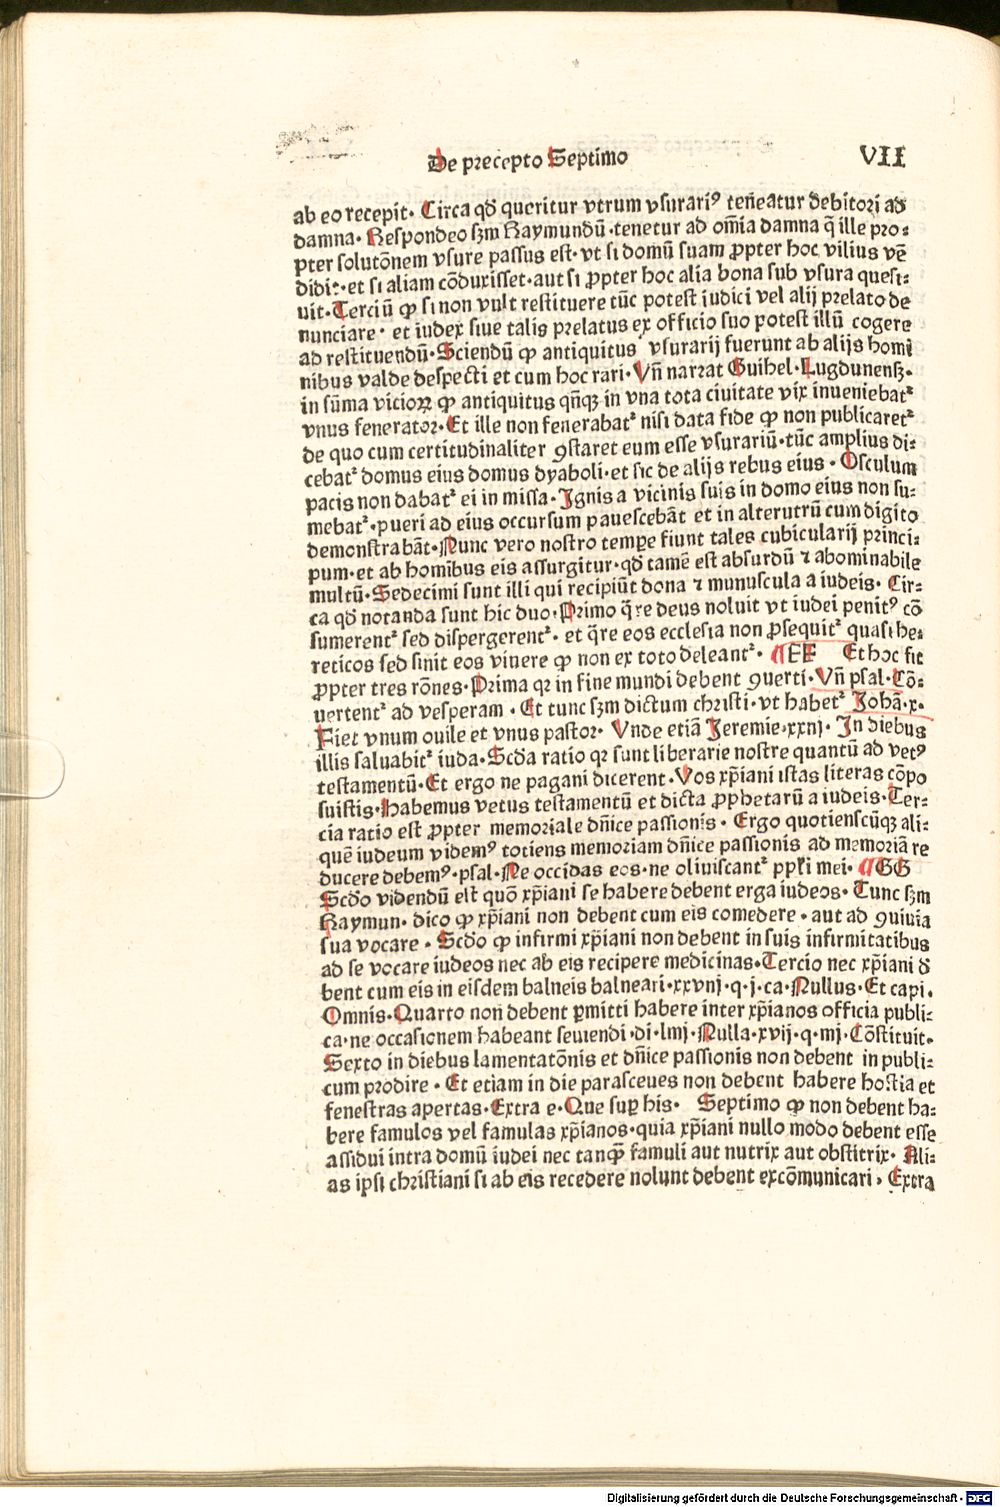 De precepto Septimo VII
ab eo recepit. Circa qđ queritur vtrum vsurariꝰ teneatur debitori ad
damna. Respondeo sꝫm Raymundū. tenetur ad om̄ia damna q̄ ille pro⸗
pter solutōnem vsure passus est. vt si domū suam ꝓpter hoc vilius vē
didit. et si aliam cōduxisset. aut si ꝓpter hoc alia bona sub vsura quesi⸗
uit. Terciū ꝙ si non vult restituere tūc potest iudici vel alij prelato de
nunciare. et iudex siue talis prelatus ex officio suo potest illū cogere
ad restituendū. Sciendū ꝙ antiquitus vsurarij fuerunt ab alijs homi
nibus valde despecti et cum hoc rari. Vn̄ narrat Guihel. Lugdunensꝫ.
in sūma vicioꝝ ꝙ antiquitus qn̄qꝫ in vna tota ciuitate vix inueniebatᷣ
vnus fenerator. Et ille non fenerabatᷣ nisi data fide ꝙ non publicaretᷣ
de quo cum certitudinaliter ꝯstaret eum esse vsurariū. tūc amplius di⸗
cebatᷣ domus eius domus dyaboli. et sic de alijs rebus eius. Osculum
pacis non dabatᷣ ei in missa. Ignis a vicinis suis in domo eius non su⸗
mebatᷣ. pueri ad eius occursum pauescebāt et in alterutrū cum digito
demonstrabāt. Nunc vero nostro tempe fiunt tales cubicularij princi⸗
pum. et ab homībus eis assurgitur. qđ tamē est absurdū ⁊ abominabile
multū. Sedecimi sunt illi qui recipiūt dona ⁊ munuscula a iudeis. Cir⸗
ca qđ notanda sunt hic duo. Primo q̄re deus noluit vt iudei penitꝰ cō
sumerentᷣ sed dispergerentᷣ. et q̄re eos ecclesia non ꝓsequitᷣ quasi he⸗
reticos sed sinit eos viuere ꝙ non ex toto deleantᷣ. ¶ FF Et hoc fit
ꝓpter tres rōnes. Prima qꝛ in fine mundi debent ꝯuerti. Vn̄ psal. Cō⸗
uertentᷣ ad vesperam. Et tunc sꝫm dictum christi. vt habetᷣ Johā. x.
Fiet vnum ouile et vnus pastor. Vnde etiā Jeremie. xxnj. In diebus
illis saluabitᷣ iuda. Scđa ratio qꝛ sunt liberarie nostre quantū ad vetꝰ
testamentū. Et ergo ne pagani dicerent. Vos xp̄iani istas literas cōpo
suistis. Habemus vetus testamentū et dicta ꝓphetarū a iudeis. Ter⸗
cia ratio est ꝓpter memoriale dn̄ice passionis. Ergo quotienscūqꝫ ali⸗
quē iudeum videmꝰ totiens memoriam dn̄ice passionis ad memoriā re
ducere debemꝰ. psal. Ne occidas eos. ne oliuiscantᷣ ppl̄i mei. ¶ GG
Scđo videndū est quō xp̄iani se habere debent erga iudeos. Tunc sꝫm
Raymun. dico ꝙ xp̄iani non debent cum eis comedere. aut ad ꝯuiuia
sua vocare. Scđo ꝙ infirmi xp̄iani non debent in suis infirmitatibus
ad se vocare iudeos nec ab eis recipere medicinas. Tercio nec xp̄iani đ
bent cum eis in eisdem balneis balneari. xxvnj. q. j. ca. Nullus. Et capi.
Omnis. Quarto non debent ꝑmitti habere inter xp̄ianos officia publi⸗
ca. ne occasionem habeant seuiendi. di. lmj. Nulla. xvij. q. mj. Cōstituit.
Sexto in diebus lamentatōnis et dn̄ice passionis non debent in publi⸗
cum prodire. Et etiam in die parasceues non debent habere hostia et
fenestras apertas. Extra e. Que suꝑ his. Septimo ꝙ non debent ha⸗
bere famulos vel famulas xp̄ianos. quia xp̄iani nullo modo debent esse
assidui intra domū iudei nec tanꝙ̄ famuli aut nutrix aut obstitrix. Ali⸗
as ipsi christiani si ab eis recedere nolunt debent excōmunicari. Extra
Digitalisierung gefördert durch die Deutsche Forschungsgemeinschaft - DFG